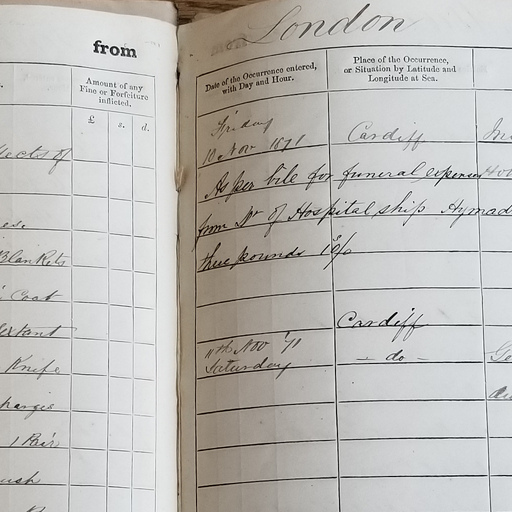 from
Amount of any
Fine or Forfeiture
inflicted.
£ s. d.
effects of
es.
Blankets
Coat
Sextant
Knife
charges
1 Pair
ush
London
Date of the Occurrence entered,
with Day and Hour.
Place of the Occurrence,
or Situation by Latitude and
Longitude at Sea.
Friday
10 Nov 1871 Cardiff
As per bile for funeral expenses
from Dr of Hospital ship Hymad
three pounds
Cardiff
11th Nov '71 — do —
Saturday